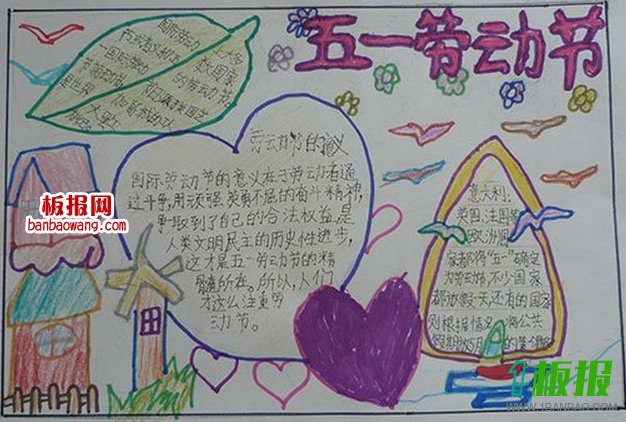 五一劳动节
国际劳动
大多
数国家
的劳动节。
劳动节的意义
国际劳动节的意义在于劳动者通
过斗争,用顽强、英勇不屈的奋斗精神,
争取到了自己的合法权益,是
人类文明民主的历史性进步,
这才是五一劳动节的精
髓所在。所以,人们
才这么注重劳
动节。
意大利:
英国、法国等
欧洲国
家都将“五一”确定
为劳动节,不少国家
都放假一天,还有的国家
则根据情况,将公共
板报网
baobaowang.com
1板报
WWW.1BANBAO.COM